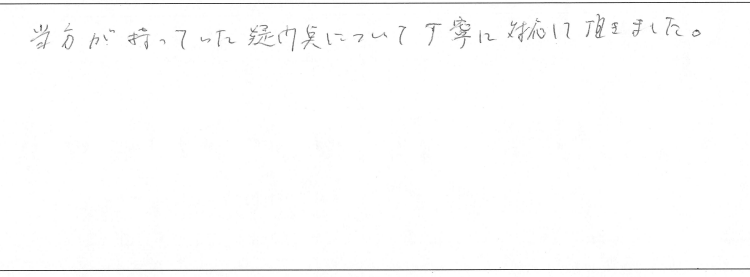 当方が持っていた疑問点について丁寧に対応して頂きました。